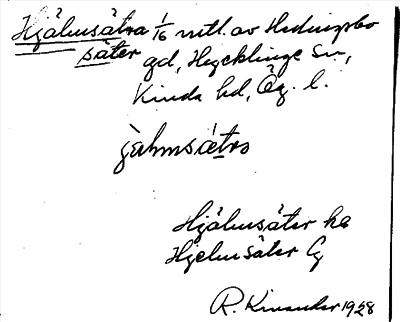 Hjälmsätra 1/16 mtl. av Hedingsbo
säter gd, Hycklinge Sn,
Kinda hd, Ög. l.
jàlmsä́tra
Hjälmsäter ka
Hjelmsäter Cg
R. Kinander 1928